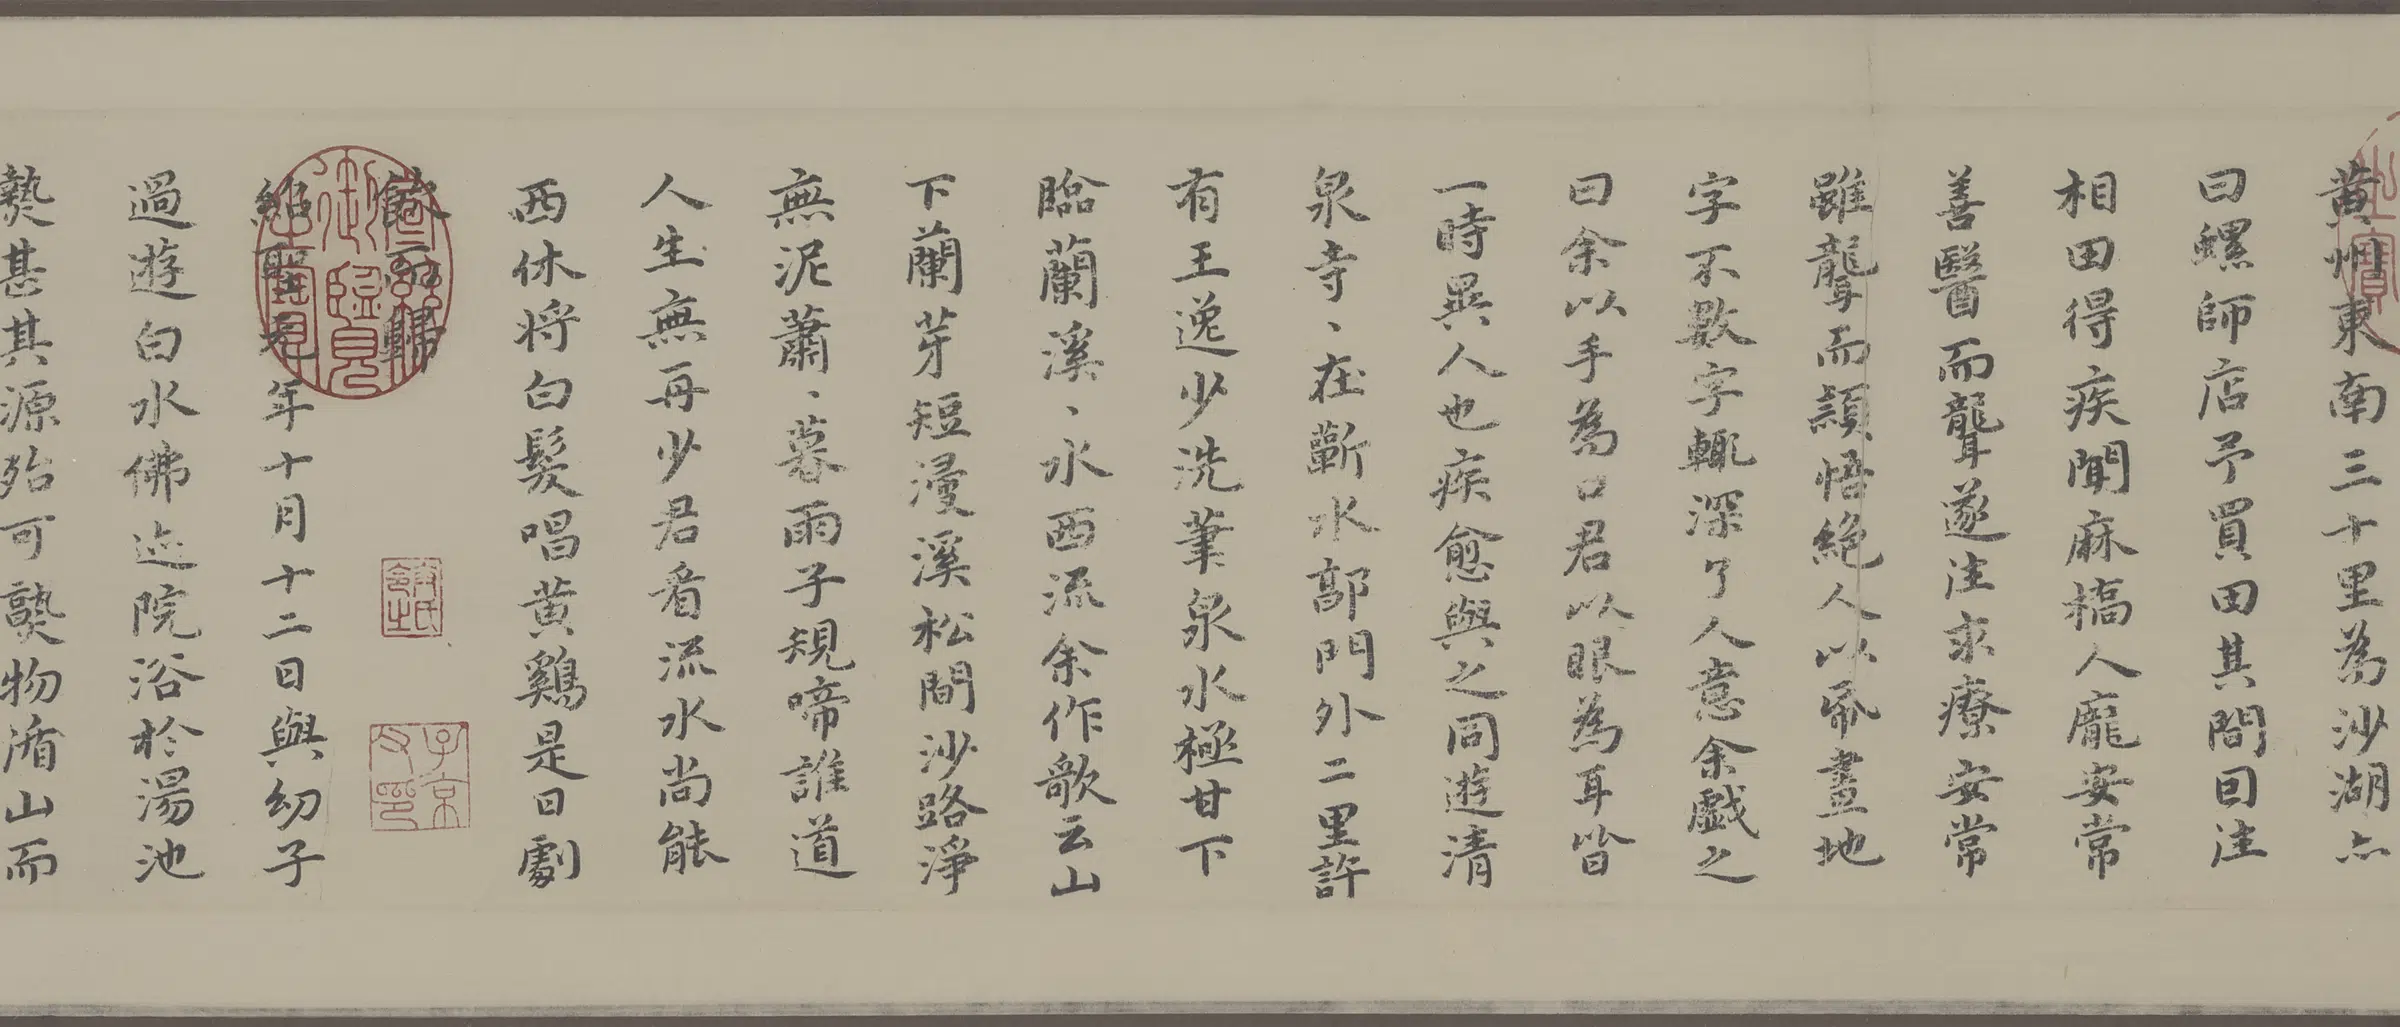 黃州東南三十里為沙湖亦
曰螺師店予買田其間因往
相田得疾聞麻橋人龐安常
善醫而聾遂往求療安常
雖聾而穎悟絕人以紙畫地
字不數字輒深了人意余戲之
曰余以手為口君以眼為耳皆
一時異人也疾愈與之同遊清
泉寺、在蘄水郭門外二里許
有王逸少洗筆泉水極甘下
臨蘭溪、水西流余作歌云山
下蘭芽短浸溪松間沙路淨
無泥蕭、暮雨子規啼誰道
人生無再少君看流水尚能
西休將白髮唱黃鷄是日劇
飲而歸
紹聖元年十月十二日與幼子
過遊白水佛迹院浴於湯池
熱甚其源殆可熟物循山而
嘉慶御覽之寶
子京父印